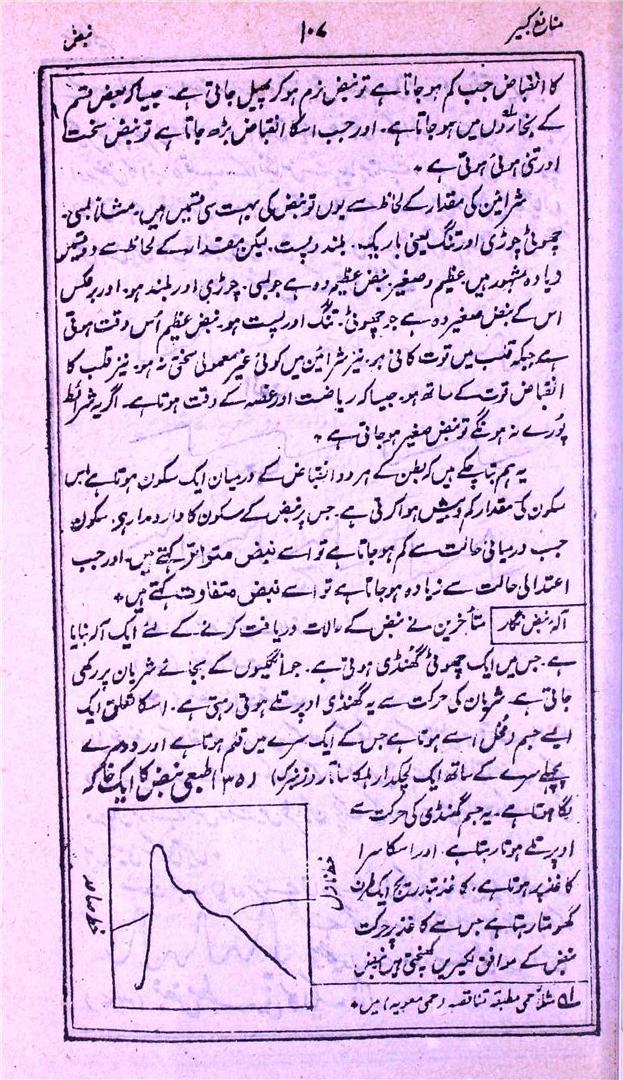 منافع کبیر
۱۰۷
نبض
کا انقباض جب کم ہو جاتا ہے تو نبض نرم ہو کر پھیل جاتی ہے۔ جیسا کہ بعض قسم
کے بخاروں میں ہو جاتا ہے۔ اور جب اسکا انقباض بڑھ جاتا ہے تو نبض سخت
اور تنی ہوئی ہوتی ہے۔
شرائین کی مقدار کے لحاظ سے یوں تو نبض کی بہت سی قسمیں ہیں۔ مثلاً لمبی۔
چھوٹی چوڑی اور تنگ یعنی باریک۔ بلند و پست۔ لیکن مقدار کے لحاظ سے دو قسمیں
زیادہ مشہور ہیں۔ عظیم و صغیر۔ نبض عظیم وہ ہے جو لمبی۔ چوڑی اور بلند ہو۔ اور برعکس
اس کے نبض صغیر وہ ہے جو چھوٹی۔ تنگ اور پست ہو۔ نبض عظیم اُس وقت ہوتی
ہے جبکہ قلب میں قوت کافی ہو۔ نیز شرائین میں کوئی غیر معمولی سختی نہ ہو۔ نیز قلب کا
انقباض قوت کے ساتھ ہو۔ جیسا کہ ریاضت اور غصہ کے وقت ہوتا ہے۔ اگر یہ شرائط
پورے نہ ہونگے تو نبض صغیر ہو جاتی ہے۔
یہ ہم بتا چکے ہیں کہ بطن کے ہر دو انقباض کے درمیان ایک سکون ہوتا ہے اس
سکون کی مقدار کم و بیش ہوا کرتی ہے۔ جس پر نبض کے سکون کا دار و مدار ہے۔ سکون
جب درمیانی حالت سے کم ہو جاتا ہے تو اسے نبض متواتر کہتے ہیں۔ اور جب
اعتدالی حالت سے زیادہ ہو جاتا ہے تو اسے نبض متفاوت کہتے ہیں۔
آلہ نبض نگار متأخرین نے نبض کے حالات دریافت کرنے کے لئے ایک آلہ بنایا
ہے۔ جس میں ایک چھوٹی گھنڈی ہوتی ہے۔ جو انگلیوں کے بجائے شریان پر رکھی
جاتی ہے۔ شریان کی حرکت سے یہ گھنڈی اوپر تلے ہوتی رہتی ہے۔ اسکا تعلق ایک
ایسے جسم سے ہوتا ہے جس کے ایک سرے میں قلم ہوتا ہے اور دوسرے
پچھلے سرے کے ساتھ ایک لچکدار ہلکا سا
(۳۵) طبعی نبض کا ایک خاکہ
لگا ہوتا ہے۔ یہ جسم گھنڈی کی حرکت سے
اوپر تلے ہوتا رہتا ہے۔ اور اسکا سرا
کاغذ پر ہوتا ہے۔ کاغذ بتدریج ایک طرف
گھومتا رہتا ہے جس سے کاغذ پر حرکت
نبض کے موافق لکیریں کھینچتی ہیں نبض
خط صاعد
خط نازل
لہ مثلاً حمی مطبقہ تناقصہ (حمی معویہ) میں۔